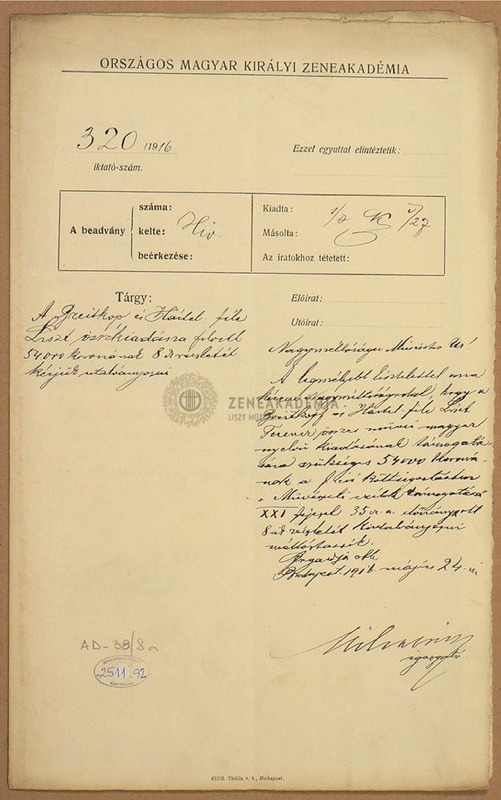 ORSZÁGOS MAGYAR KIRÁLYI ZENEAKADÉMIA
320 /1916
iktató-szám.
Ezzel egyuttal elintéztetik:
A beadvány
száma:
kelte: Hiv.
beérkezése:
Kiadta:
Másolta:
Az iratokhoz tétetett:
Tárgy:
A Breitkopf és Härtel féle
Liszt összkiadásra felvett
54000 koronának 8ik részletét
kérjük utalványozni
Előirat:
Utóirat:
Nagyméltóságu Miniszter Ur!
A legmélyebb tisztelettel arra
kérem Nagyméltóságodat, hogy a
Breitkopf és Härtel féle Liszt
Ferencz össze művei magyar
nyelvü kiadásának támogatá-
sára szükséges 54000 koroná-
nak a költségvetésben
a Művészeti czélok támogatása
XXI fejezet 35 r. a. előirányzott
8-ik részletét kiutalványozni
méltóztassék.
Fogadja stb.
Budapest, 1916 május 24.-én
igazgató
ZENEAKADÉMIA
LISZT MÚZEUM
AD-38/8a
2511.92
45212. Thália r. t., Budapest.